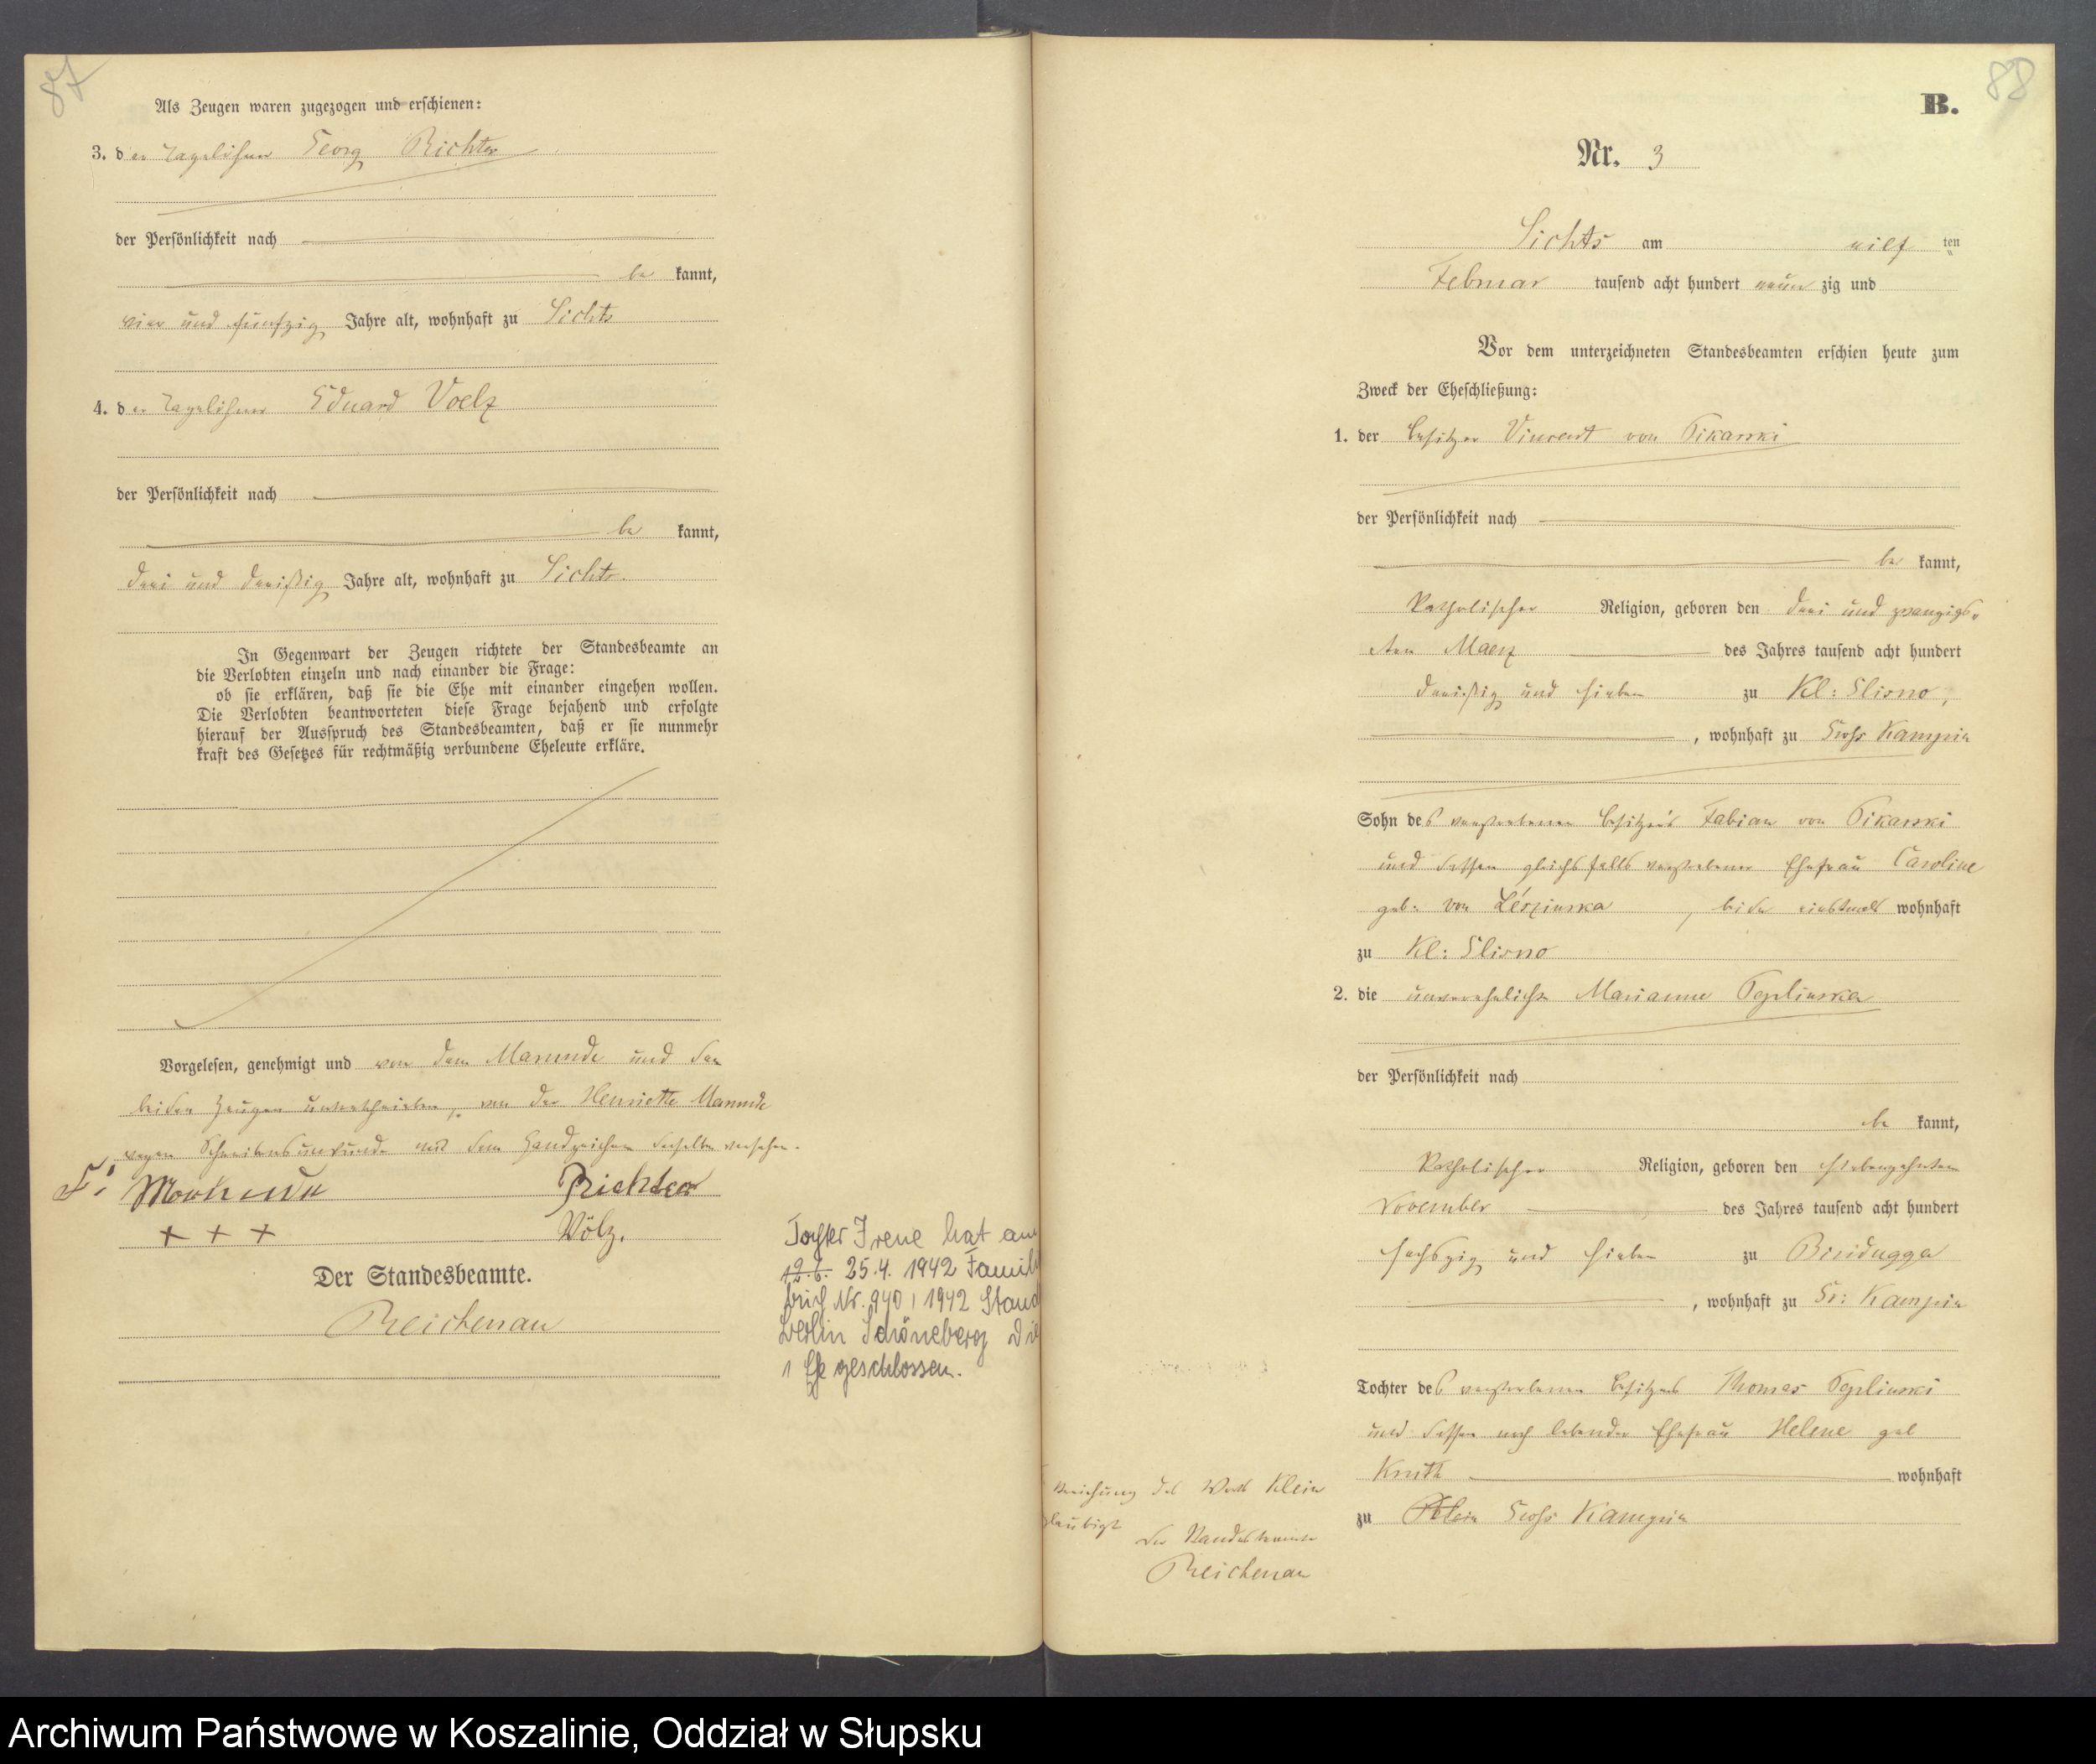 87
Als Zeugen waren zugezogen und erschienen:
3. der Tagelöhner Georg Richter
der Persönlichkeit nach
be kannt,
vier und fünfzig Jahre alt, wohnhaft zu Sichts
4. der Tagelöhner Eduard Voelz
der Persönlichkeit nach
be kannt,
drei und dreißig Jahre alt, wohnhaft zu Sichts.
In Gegenwart der Zeugen richtete der Standesbeamte an
die Verlobten einzeln und nach einander die Frage:
ob sie erklären, daß sie die Ehe mit einander eingehen wollen.
Die Verlobten beantworteten diese Frage bejahend und erfolgte
hierauf der Ausspruch des Standesbeamten, daß er sie nunmehr
kraft des Gesetzes für rechtmäßig verbundene Eheleute erkläre.
Vorgelesen, genehmigt und von dem Marunde und den
beiden Zeugen unterschrieben, von der Henriette Marunde
wegen Schreibensunkunde mit dem Handzeichen derselben versehen.
Richter
+ + +
Völz.
Der Standesbeamte.
Reichenau
Tochter Irene hat am
12.6. 25.4. 1942 Famili
Nr. 940/1942 Stand
Berlin Schöneberg die
1 Ehe geschlossen.
88
B.
Nr. 3
Sichts am elf ten
Februar tausend acht hundert neun zig und
Vor dem unterzeichneten Standesbeamten erschien heute zum
Zweck der Eheschließung:
1. der Besitzer Vincent von Pikarski
der Persönlichkeit nach
be kannt,
Katholischer Religion, geboren den drei und zwanzigs-
ten Maerz des Jahres tausend acht hundert
dreißig und sieben zu Kl: Glisno,
, wohnhaft zu Groß Kampin
Sohn des verstorbenen Besitzers Fabian von Pikarski
und dessen gleichfalls verstorbener Ehefrau Caroline
geb: von , beide wohnhaft
zu Kl: Glisno
2. die unverehelichte Marianne Peplinska
der Persönlichkeit nach
be kannt,
Katholischer Religion, geboren den siebenzehnten
November des Jahres tausend acht hundert
sechszig und sieben zu Brzidugga
, wohnhaft zu Gr: Kampin
Tochter des verstorbenen Besitzers Thomas Peplinski
und dessen noch lebender Ehefrau Helene geb
Knuth wohnhaft
zu Klein Groß Kampin
streichung des Worts Klein
glaubigt
Der Standesbeamte
Reichenau
Archiwum Państwowe w Koszalinie, Oddział w Słupsku